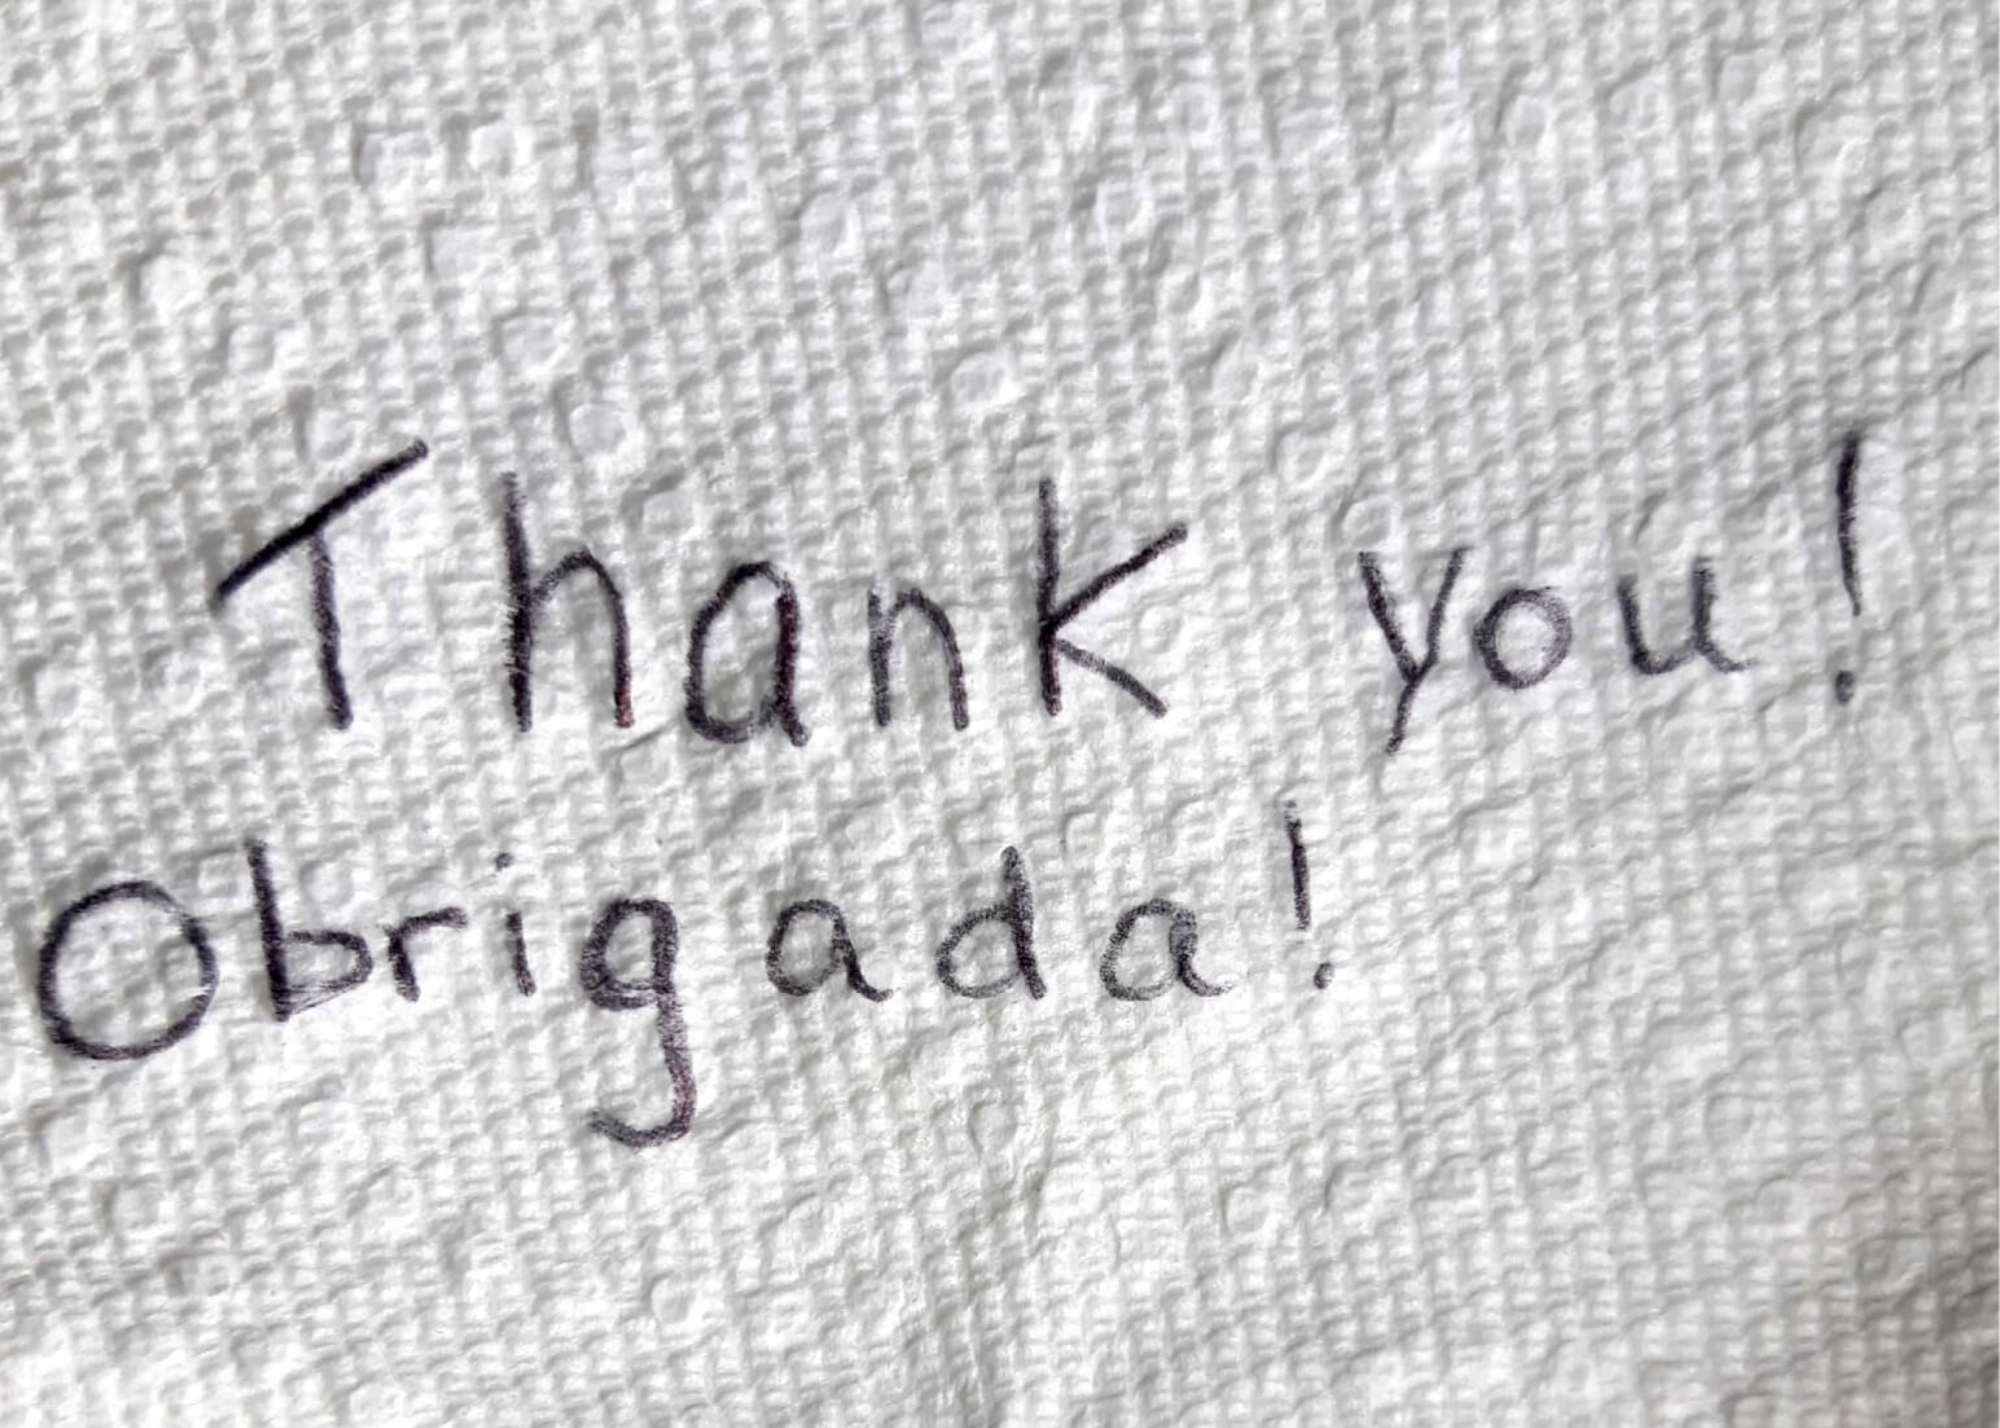 Thank you!
Obrigada!